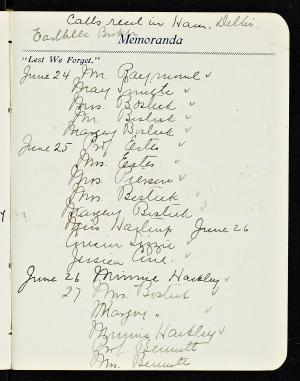 Calls recd in Ham. Dellis.
Earlville
Memoranda
"Lest We Forget."
June 24 Mr. Raymond "
May "
Mrs. Bostick "
Mr. Bostick "
Margery Bostick "
June 25 Estes "
Mrs. Estes "
Mrs. Pierson "
Mrs. Bostick "
Margery Bostick "
Miss June 26
Cousin Lizzie "
Jessica Cone. "
June 26 Minnie Hackley "
27 Mrs. Bostick
Margery " "
Minnie Hackley "
Bennett
Mrs. Bennett